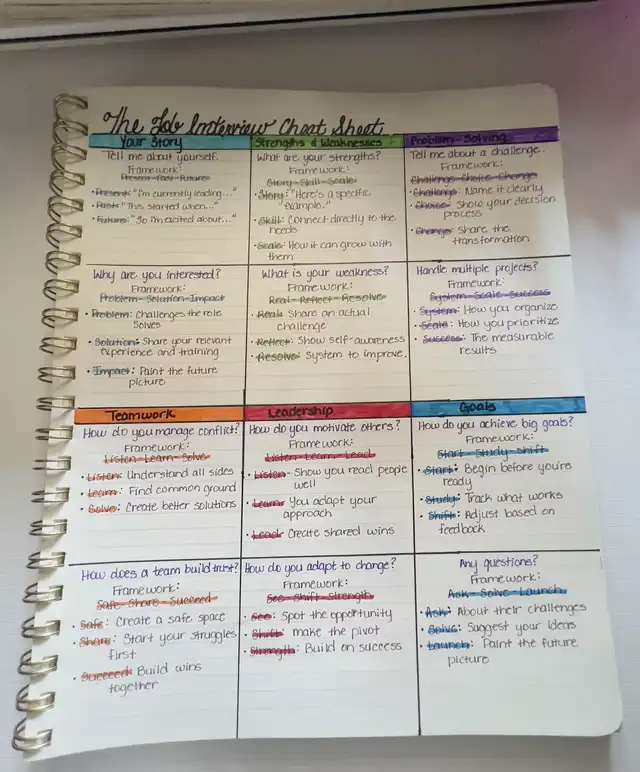 The Job Interview Cheat Sheet
Your Story
Tell me about yourself.
Framework:
Present-Past-Future
• Present: "I'm currently leading..."
• Past: "This started when..."
• Future: "So I'm excited about..."
Why are you interested?
Framework:
Problem-Solution-Impact
• Problem: Challenges the role
solves
• Solution: Share your relevant
experience and training
• Impact: Paint the future
picture
Strengths & Weaknesses
What are your strengths?
Framework:
Story-Skill-Scale
• Story: "Here's a specific
example."
• Skill: Connect directly to the
needs
• Scale: How it can grow with
them
What is your weakness?
Framework:
Real-Reflect-Resolve
• Real: Share an actual
challenge
• Reflect: Show self-awareness
• Resolve: System to improve.
Problem-Solving
Tell me about a challenge.
Framework:
Challenge-Choice-Change
• Challenge: Name it clearly
• Choice: Show your decision
process
• Change: Share the
transformation
Handle multiple projects?
Framework:
System-Scale-Success
• System: How you organize
• Scale: How you prioritize
• Success: The measurable
results
Teamwork
How do you manage conflict?
Framework:
Listen-Learn-Solve
• Listen: Understand all sides
• Learn: Find common ground
• Solve: Create better solutions
How does a team build trust?
Framework:
Safe-Share-Succeed
• Safe: Create a safe space
• Share: Start your struggles
first
• Succeed: Build wins
together
Leadership
How do you motivate others?
Framework:
Listen-Learn-Lead
• Listen- Show you read people
well
• Learn: You adapt your
approach
• Lead: Create shared wins
How do you adapt to change?
Framework:
See-Shift-Strength
• See: Spot the opportunity
• Shift: make the pivot
• Strength: Build on success
Goals
How do you achieve big goals?
Framework:
Start-Study-Shift
• Start: Begin before you're
ready
• Study: Track what works
• Shift: Adjust based on
feedback
Any questions?
Framework:
Ask-Solve-Launch
• Ask: About their challenges
• Solve: Suggest your ideas
• Launch: Paint the future
picture